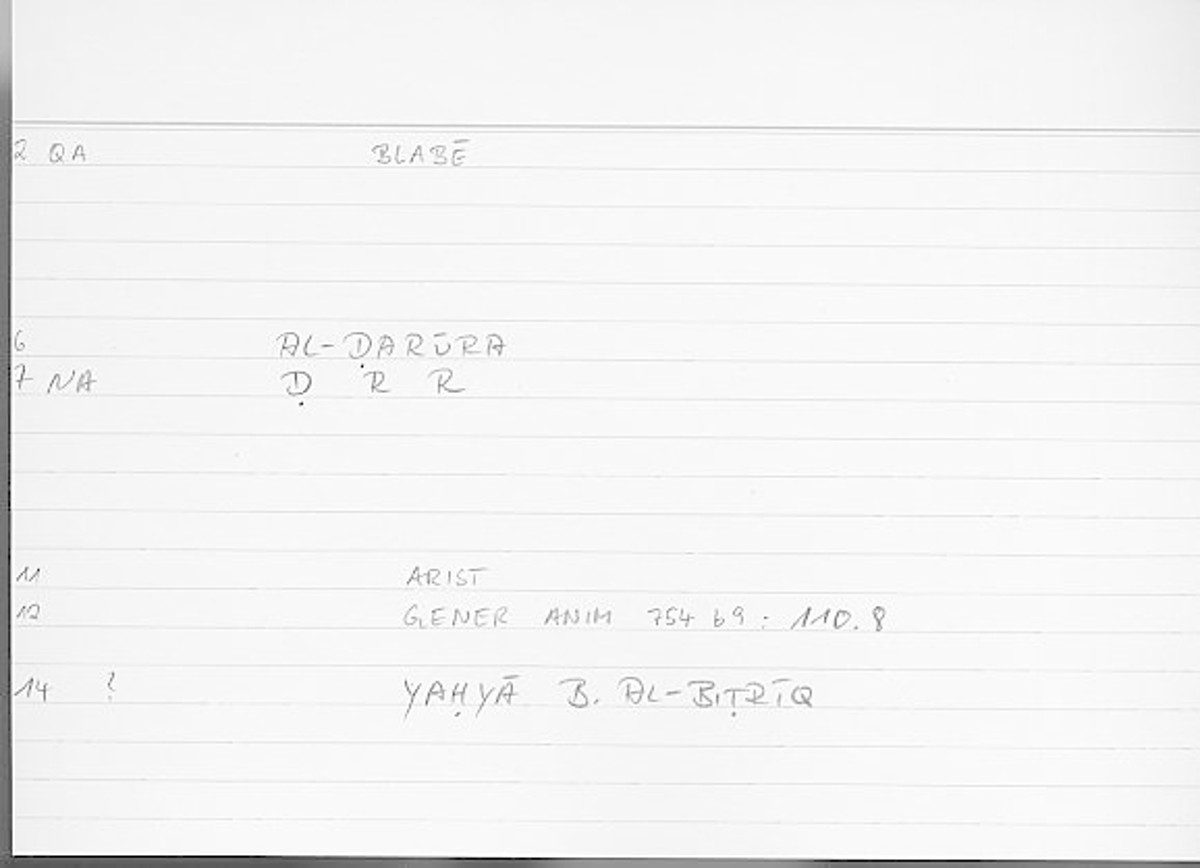 2 QA BLABĒ
6 AL-ḌARŪRA
7 NA Ḍ R R
11 ARIST
12 GENER ANIM 754 b9 : 110.8
14 ? YAḤYĀ B. AL-BIṬRĪQ